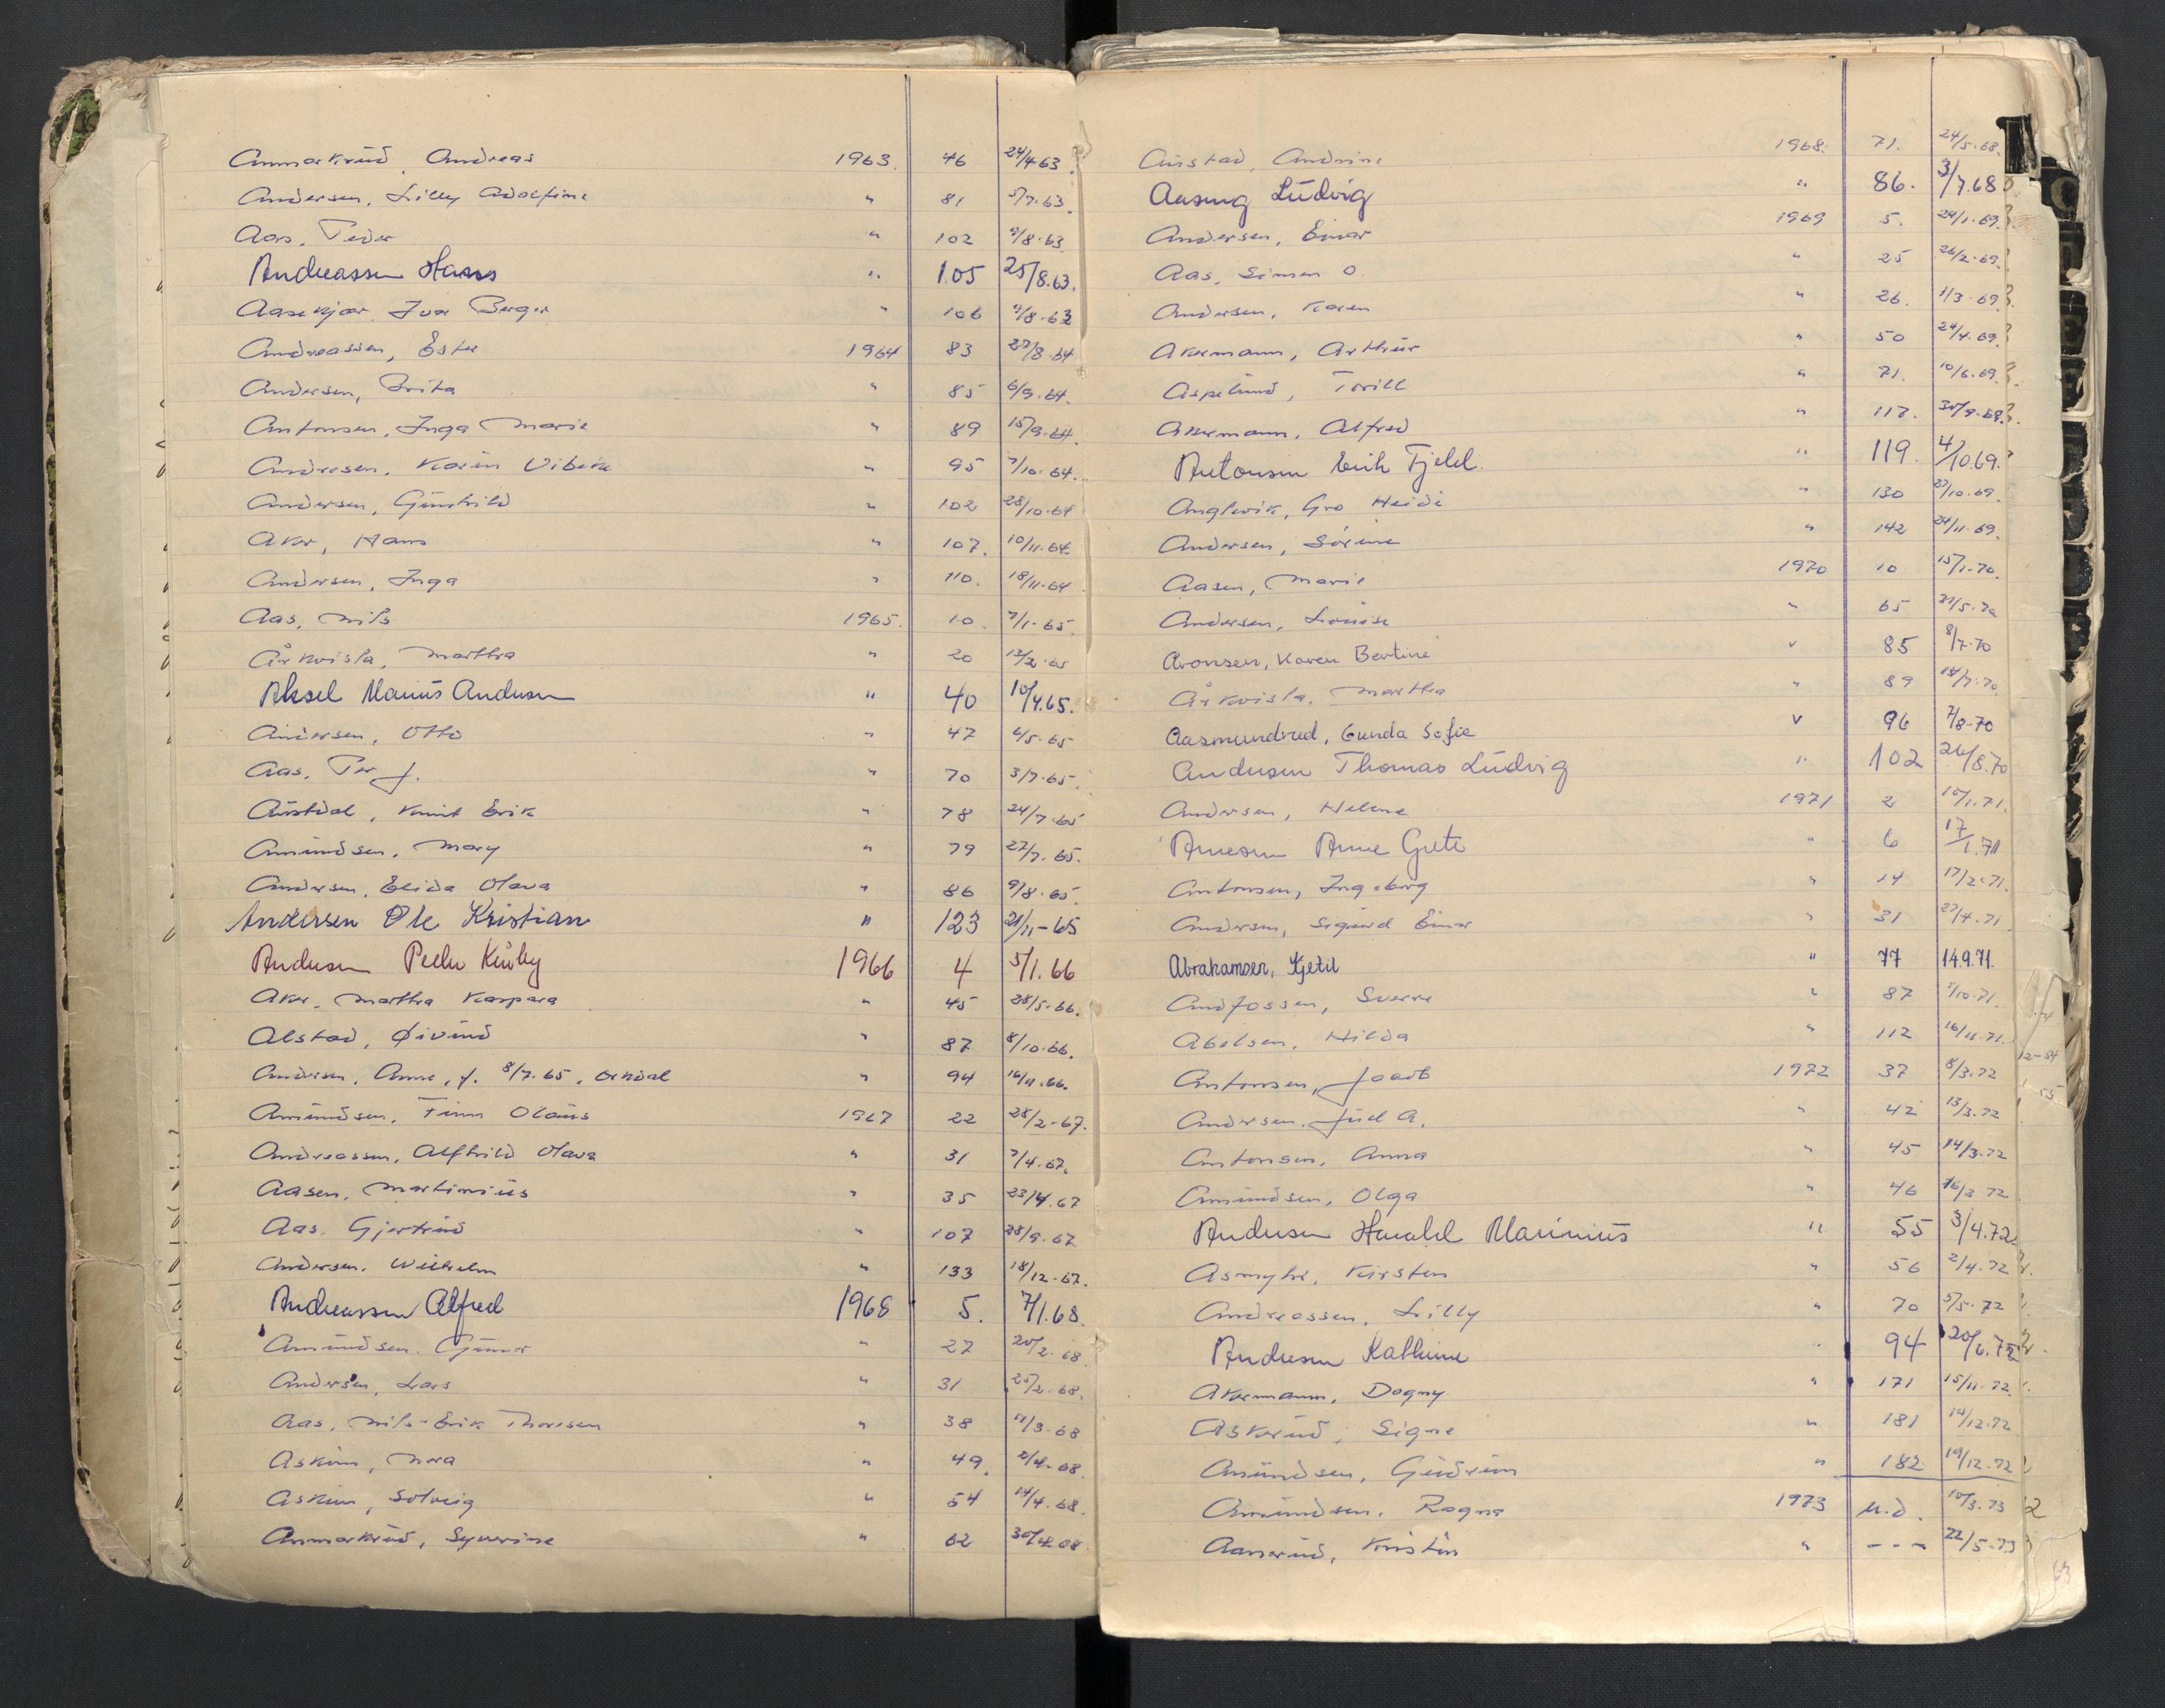 Anmarkrud, Andreas 1963. 46 24/4-63.
Andersen, Lilly Adolfine " 81 5/7-63.
Aas, Peder " 102 9/8-63
Andreassen Hans " 105 25/8.63.
Aasekjær, Ivar Berger " 106 9/8-63
Andreassen, Ester 1964 83 27/8-64
Andersen, Brita " 85 6/9-64.
Antonsen, Inga Marie " 89 15/9-64.
Andresen, Karin Vibeke " 95 7/10-64.
Andersen, Gunhild " 102 28/10-64
Aker, Hans " 107. 10/11-64.
Andersen, Inga " 110. 18/11-64
Aas, Nils 1965. 10. 7/1-65.
Årkvisla, Martha " 20 13/2-65
Aksel Marius Andersen " 40 10/4.65.
Andersen, Otto " 47 4/5-65
Aas, Per J. " 70 3/7-65.
Austdal, Knut Erik " 78 24/7-65
Amundsen, Mary " 79 27/7-65.
Andersen, Elida Olava " 86 9/8-65.
Andersen Ole Kristian " 123 21/11-65
Andersen Peder 1966 4 5/1.66
Aker, Martha Kaspara " 45 28/5-66.
Alstad, Øivind " 87 8/10-66.
Andersen, Anne, f. 8/7-65, Orkdal " 94 16/11.66.
Amundsen, Finn Olaus 1967 22 28/2-67.
Andreassen, Alfhild Olava " 31 7/4-67.
Aasen, Martinius " 35 23/4.67
Aas, Gjertrud " 107 28/9-67
Andersen, Wilhelm " 133 18/12-67.
Andreassen Alfred 1968 5. 7/1.68.
Amundsen, Gunnar " 27 20/2-68
Andersen, Lars " 31 25/2-68.
Aas, Nils-Erik Thoresen " 38 11/3-68
Askim, Nora " 49. 2/4-68.
Askim, Solveig " 54 14/4.68.
Anmarkrud, Syverine " 62 30/4.68
Austad, Andrine 1968. 71. 24/5-68.
Aaseng Ludvig " 86. 3/7.68
Andersen, Einar 1969 5. 24/1-69.
Aas, Simen O. " 25 26/2-69.
Andersen, Karen " 26. 1/3-69.
Akermann, Arthur " 50 24/4.69.
Aspelund, Torill " 71. 10/6.69.
Akermann, Alfred " 117. 30/9.69.
Antonsen Erik Fjeld. " 119. 4/10.69.
Anglevik, Gro Heidi " 130 27/10.69.
Andersen, Sørine " 142 24/11-69.
Aasen, Marie 1970 10 15/1-70.
Andersen, Louise " 65 21/5-70
Aronsen, Karen Bertine v 85 8/7-70
Årkvisla, Martha " 89 18/7-70
Aasmundrud, Gunda Sofie v 96 7/8-70
Andersen Thomas Ludvig " 102 26/8.70
Andersen, Helene 1971 2 10/1.71.
Arnesen Anne Grete " 6 17/1.71
Antonsen, Ingeborg " 14 17/2-71.
Andersen, Sigurd Einar " 31 27/4.71
Abrahamsen, Kjetil " 77 14.9.71.
Andfossen, Sverre " 87 1/10-71.
Abelsen, Hilda " 112 16/11-71.
Antonsen, Jacob 1972 37 8/3.72
Andersen, Juel A. " 42 13/3.72
Antonsen, Anna " 45 14/3.72
Amundsen, Olga " 46 16/3 72
Andersen Harald Marinius " 55 3/4.72
Asmyhr, Kirsten " 56 2/4.72
Andreassen, Lilly " 70 5/5-72
Andresen Kathrine " 94 20/6.72
Akermann, Dagny " 171 15/11.72.
Askerud, Signe " 181 14/12.72
Amundsen, Gudrun " 182 19/12-72
Amundsen, Ragna 1973 u.d. 10/3.73
Aanerud, Kristin " - - - 22/5-73